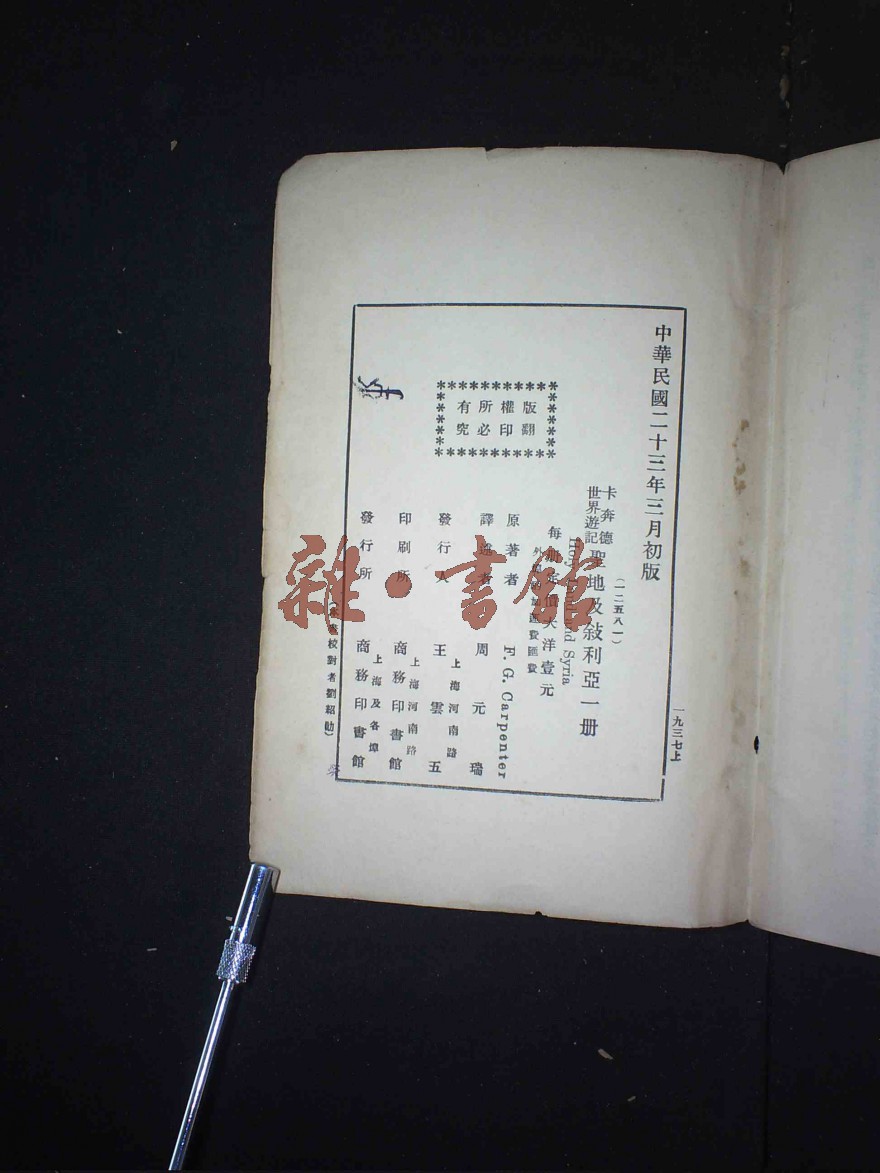 中華民國二十三年三月初版
一九三七上
(一二五八一)
卡奔德世界遊記 聖地及敍利亞一册
Holy Land and Syria
每册定價大洋壹元
外埠酌加運費匯費
版權所有
翻印必究
原著者 F. G. Carpenter
譯述者 周元瑞
發行人 王雲五
上海河南路
印刷所 商務印書館
上海河南路
發行所 商務印書館
上海及各埠
校對者劉紹勛)
雜·書館